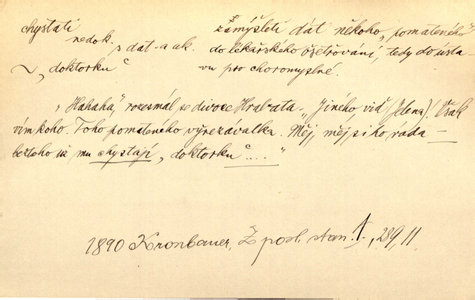 chystati
nedok. s dat. a ak.
~ „doktorku“
zamýšleti dát někoho „pomateného“
do lékařského ošetřování, tedy do ústa
vu pro choromyslné.
„Hahaha“, rozesmál se divoce Hrabata – „Jiného, viď (Jdena). Však
vím koho. Toho pomateného vyřezávalka. Měj, měj si ho ráda –
beztoho už mu chystají „doktorku“ ...."
1890 Kronbauer, Z posl. stan. 1., 289, 11